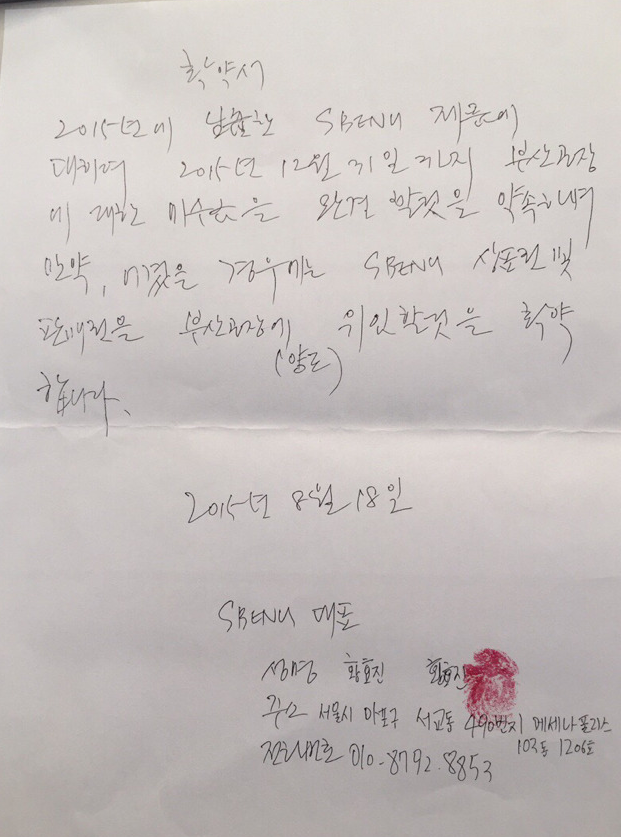 확약서
2015년에 납품한 SBENU 제품에
대하여 2015년 12월 31일 까지 부산공장
에 대한 미수금을 완결 할것을 약속하며
만약, 어겼을 경우에는 SBENU 상표권 및
판매권을 부산공장에 위임할것을 확약
(양도)
합니다.
2015년 8월 18일
SBENU 대표
성명 황효진 황효진
주소 서울시 마포구 서교동 490번지 메세나폴리스
103동 1206호
전화번호 010-8792-8853